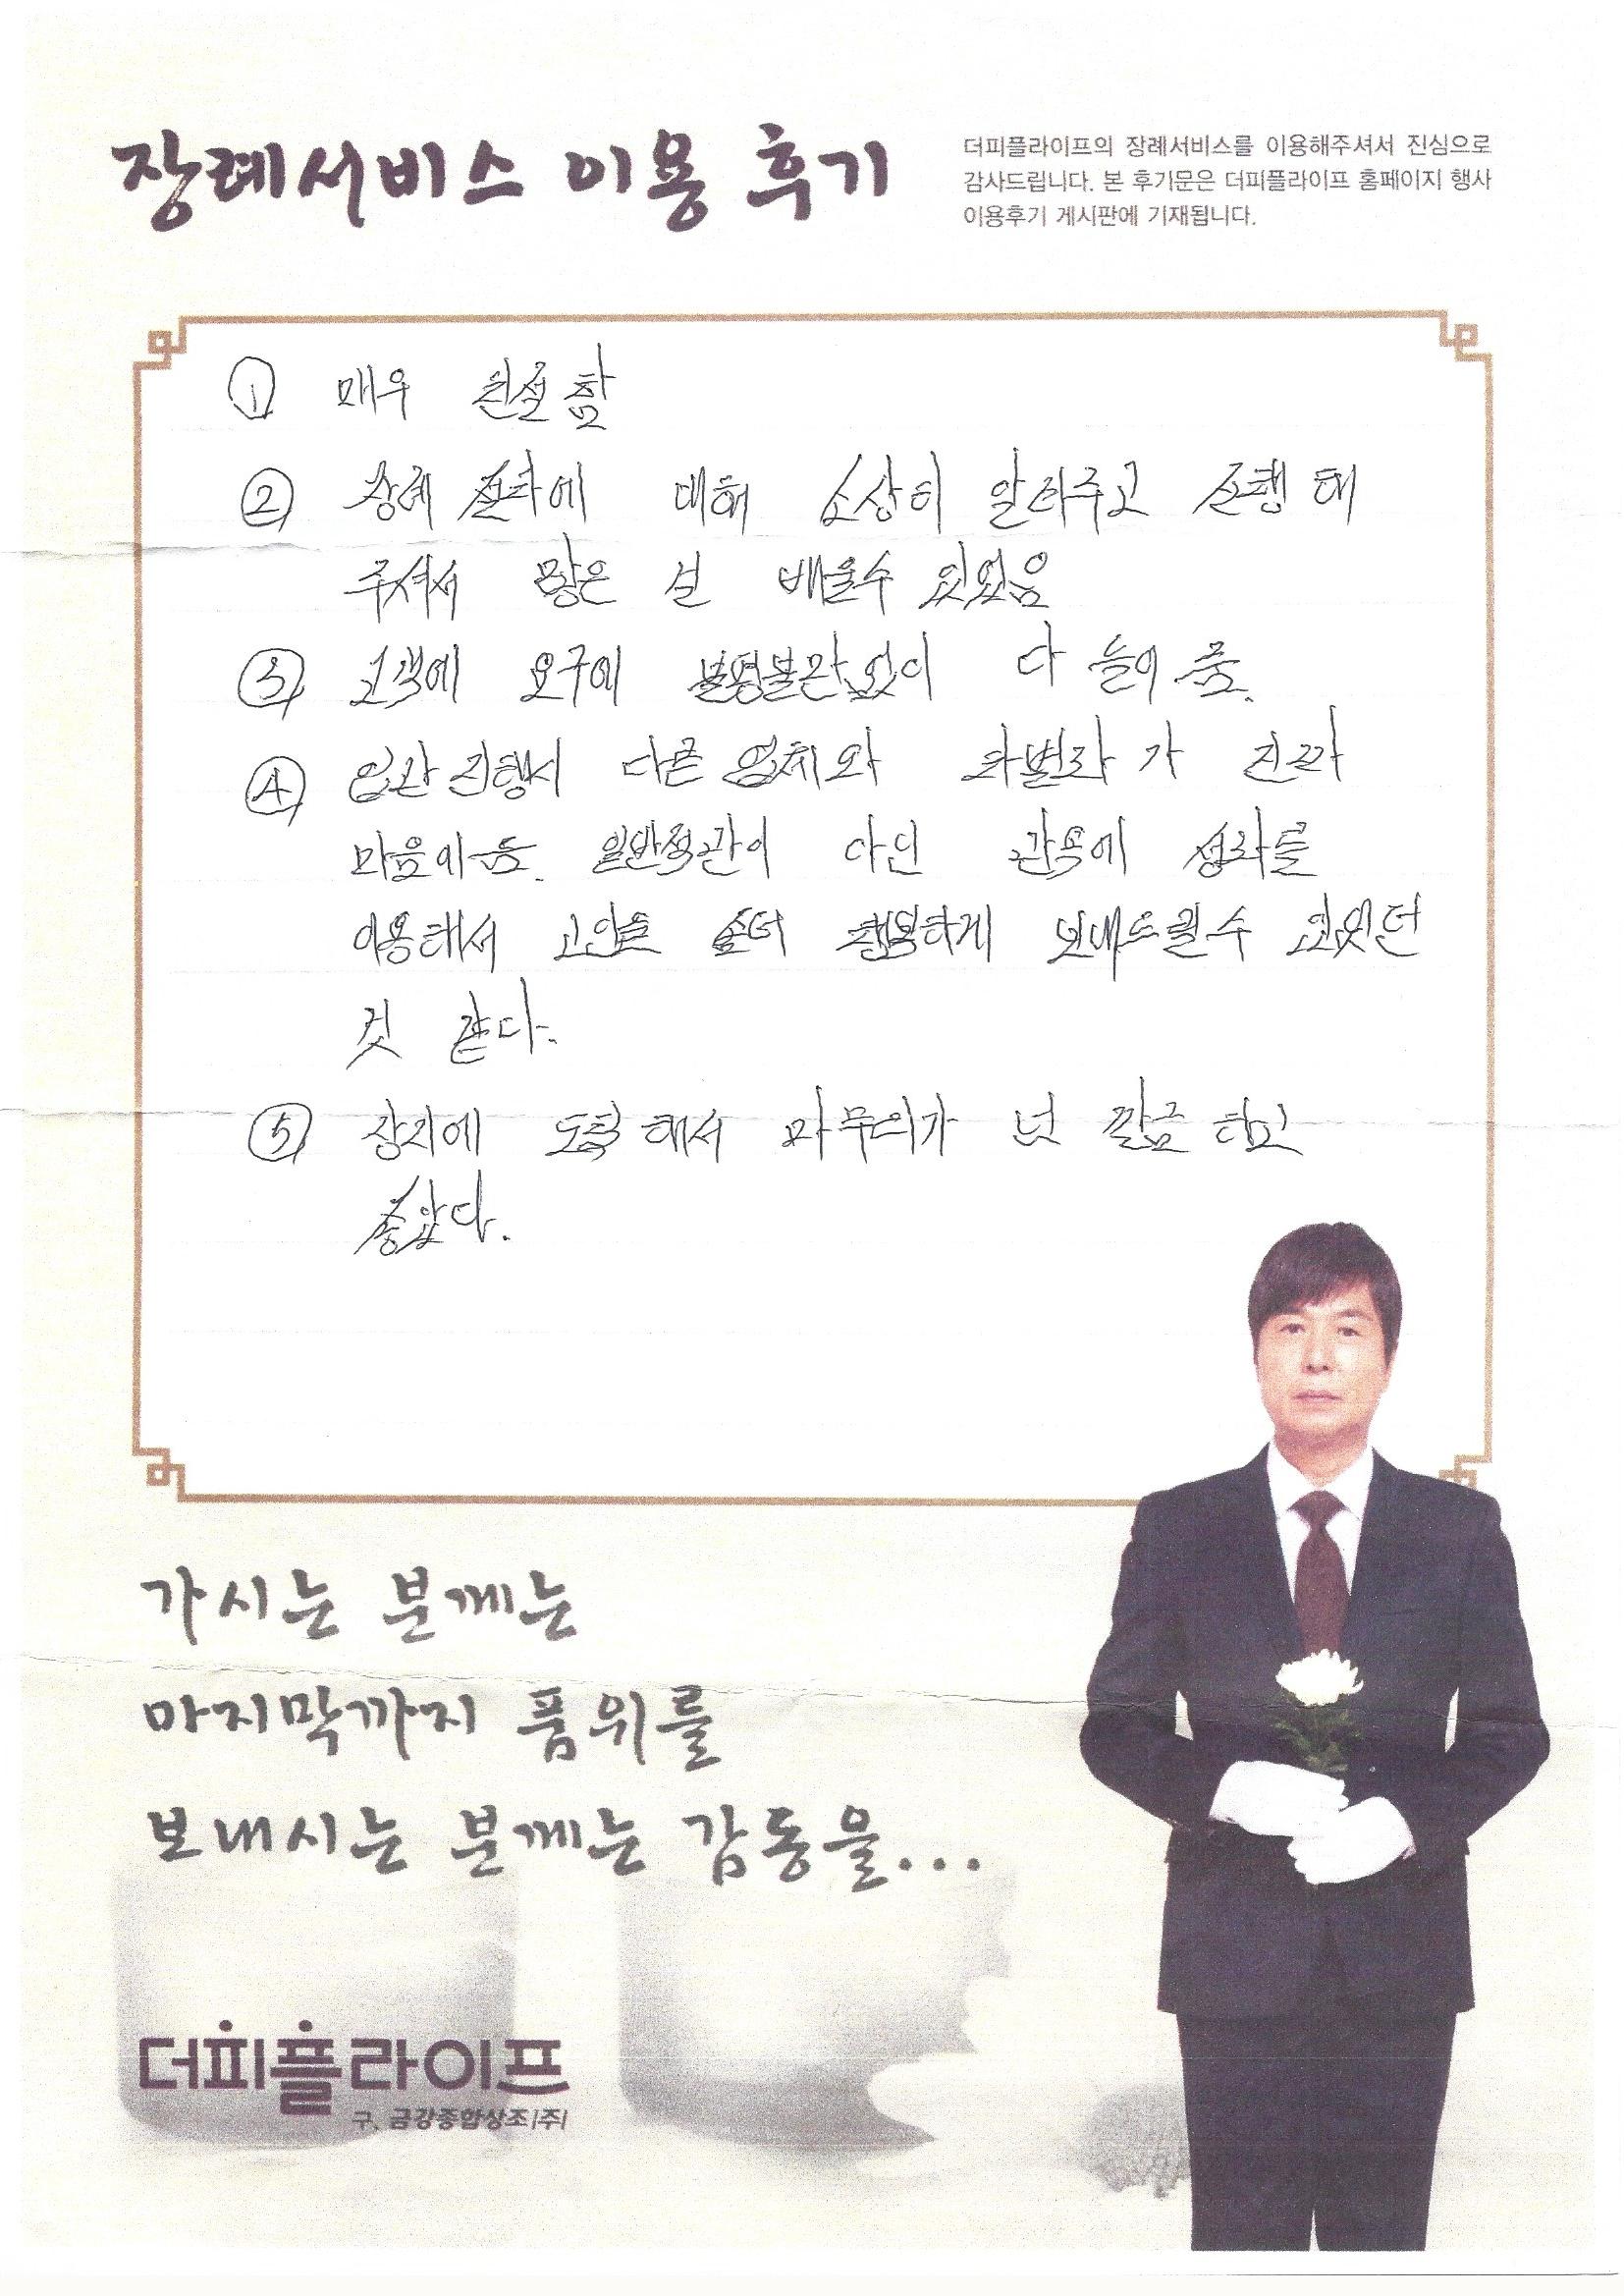 장례서비스 이용 후기
더피플라이프의 장례서비스를 이용해주셔서 진심으로
감사드립니다. 본 후기문은 더피플라이프 홈페이지 행사
이용후기 게시판에 기재됩니다.
① 매우 친절함
② 장례 절차에 대해 소상히 알려주고 진행해
주셔서 많은 걸 배울수 있었음
③ 고객에 요구에 불평불만없이 다 들어줌.
④ 입관진행시 다른 업체와 차별화가 진짜
마음에듬. 일반적관이 아닌 관용에 성화를
이용해서 고인을 좀더 행복하게 보내드릴수 있었던
것 같다.
⑤ 장지에 도착해서 마무리가 넘 깔끔하고
좋았다.
가시는 분께는
마지막까지 품위를
보내시는 분께는 감동을...
더피플라이프
구. 금강종합상조(주)